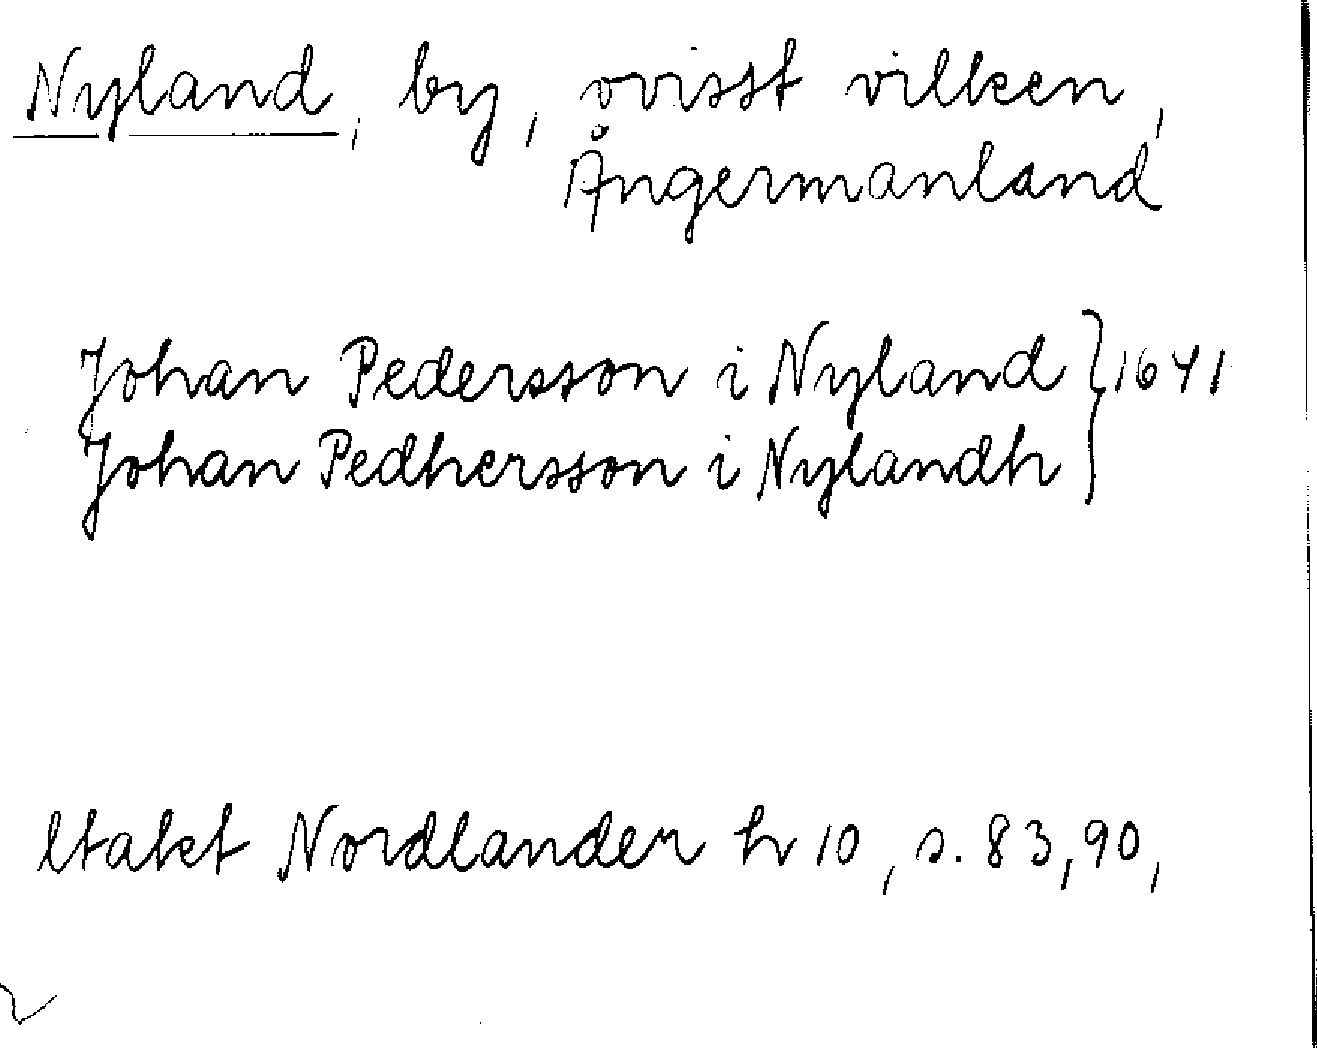 Nyland, by, ovisst vilken,
Ångermanland
Johan Pedersson i Nyland } 1641
Johan Pedhersson i Nylandh
Utakt Nordlander h 10, s. 83, 90,